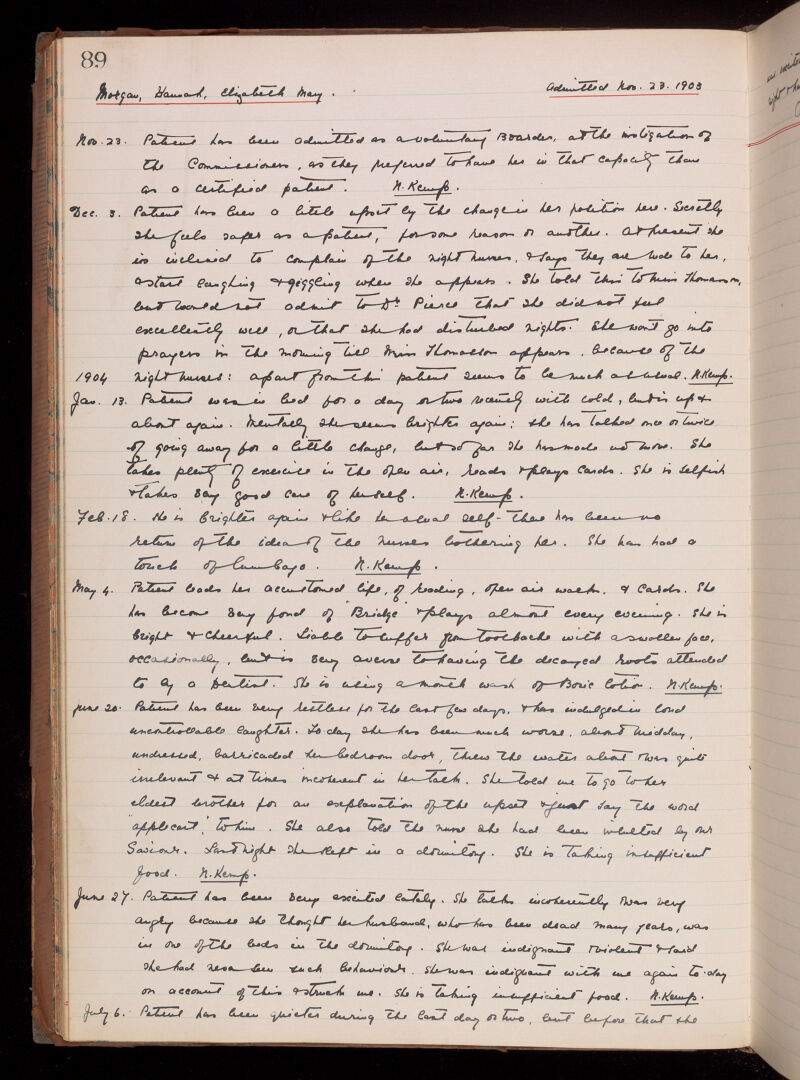 89
Morgan, Hannah, Elizabeth May.
Admitted Nov. 23. 1903
Nov. 23. Patient has been admitted as a voluntary Boarder, at the instigation of
the Commissioners, as they preferred to have her in that capacity than
as a certified patient. N. Kemp.
Dec. 3. Patient has been a little upset by the change in her position here. Secretly
she feels safer as a patient, for some reason or another. At present she
is inclined to complain of the night nurses, & says they are rude to her,
& start laughing & giggling when she appears. She told this to Miss Thomason,
but would not admit to Dr Pierce that she did not feel
excellently well, or that she had disturbed nights. She won't go into
prayers in the morning till Miss Thomason appears, because of the
1904 night nurses: apart from this patient seems to be much as usual. N. Kemp.
Jan. 13. Patient was in bed for a day or two recently with cold, but is up &
about again. Mentally she seems brighter again; she has talked once or twice
of going away for a little change, but so far she has made no move. She
takes plenty of exercise in the open air, reads & plays cards. She is selfish
& takes very good care of herself. N. Kemp.
Feb. 18. She is brighter again & like her usual self - there has been no
return of the idea of the nurses bothering her. She has had a
touch of lumbago. N. Kemp.
May 4. Patient leads her accustomed life, of reading, open air walks, & cards. She
has become very fond of "Bridge" & plays almost every evening. She is
bright & cheerful. Liable to suffer from toothache with a swollen face,
occasionally, but is very averse to having the decayed roots attended
to by a Dentist. She is using a mouth wash of Boric lotion. N. Kemp.
June 20. Patient has been very restless for the last few days, & has indulged in loud
uncontrollable laughter. To day she has been much worse, about midday,
undressed, barricaded her bedroom door, threw the water about & was quite
irrelevant & at times incoherent in her talk. She told me to go to her
eldest brother for an explanation of the upset & just say the word
"applecart", to him. She also told the nurse she had been insulted by our
Saviour. Last night she slept in a dormitory. She is taking insufficient
food. N. Kemp.
June 27. Patient has been very excited lately. She talks incoherently & was very
angry because she thought her husband, who has been dead many years, was
in one of the beds in the dormitory. She was indignant & violent & said
she had never seen such behaviour. She was indignant with me again to-day
on account of this & struck me. She is taking insufficient food. N. Kemp.
July 6. Patient has been quieter during the last day or two, but before that she